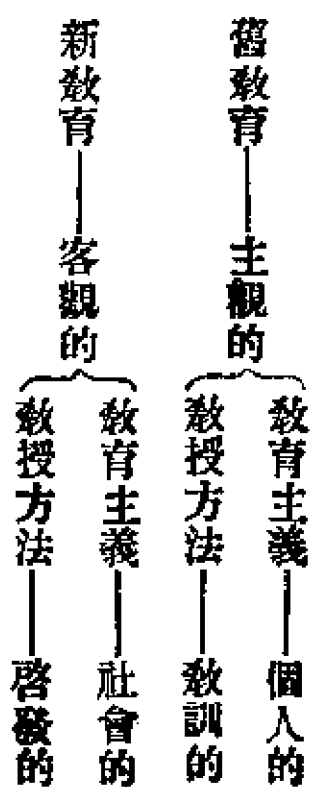 舊敎育——主觀的
敎育主義——個人的
敎授方法——敎訓的
新敎育——客觀的
敎育主義——社會的
敎授方法——啓發的